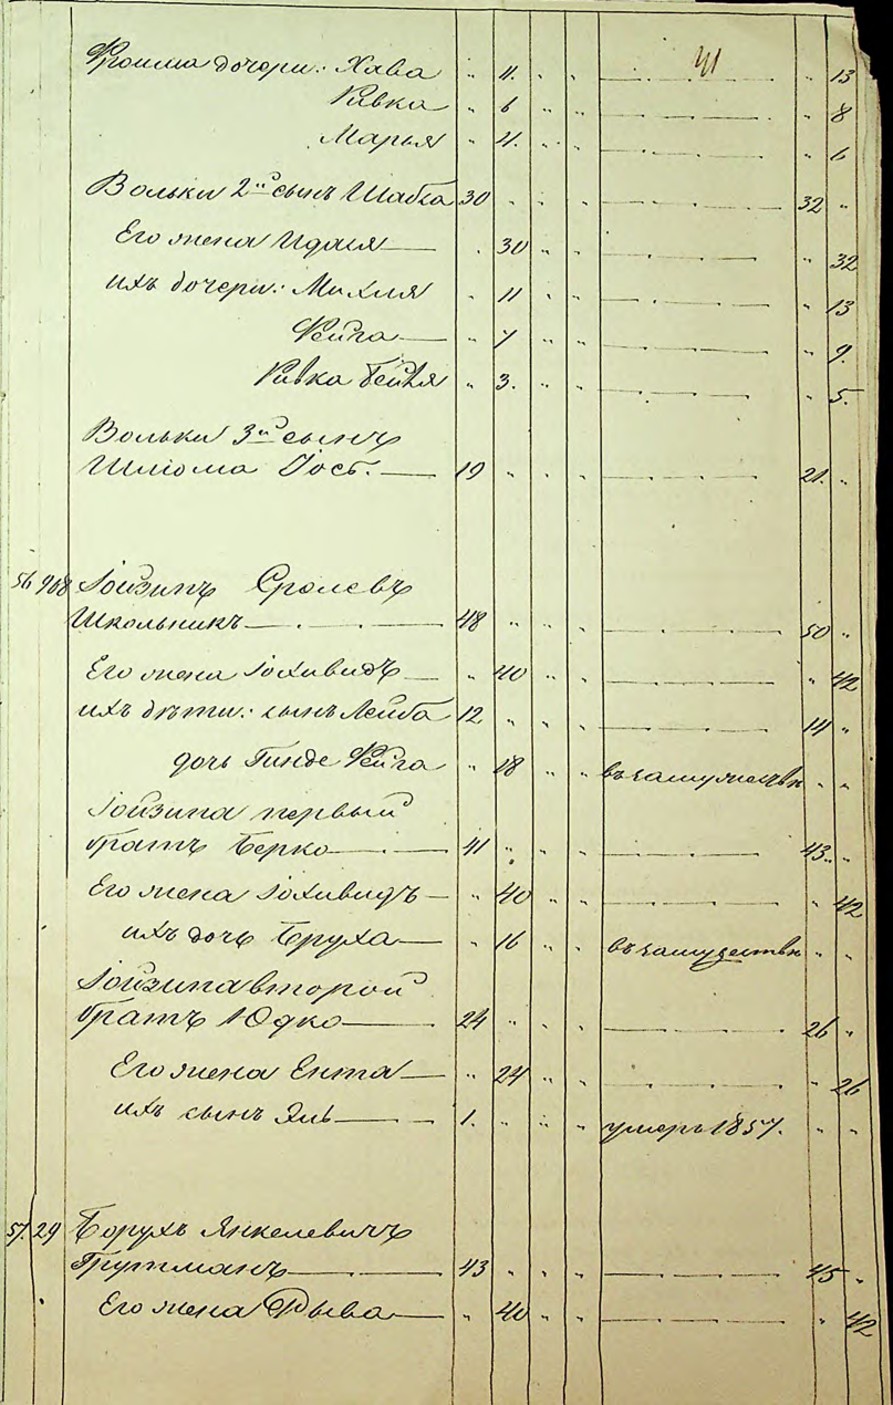 41
Фроима дочери: Хява " 11. " " " 13
Ривка " 6 " " " 8
Марья " 4. " " " 6
Вольки 2й сынъ Шабса 30 " " " 32 "
Его жена Идася " 30 " " " 32
ихъ дочери: Михля " 11 " " " 13
Фейга " 7 " " " 9.
Ривка Бейля " 3. " " " 5.
Вольки 3й сынъ
Шлиома Іос. 19 " " " 21. "
56 908 Іойзипъ Сролевъ
Школьникъ 48 " " " 50 "
Его жена Іохивидъ " 40 " " " 42
ихъ дѣти: сынъ Лейба 12 " " " 14 "
дочь Гинде Фейга " 18 " " въ замужествѣ " "
Іойзипа первый
братъ Берко 41 " " " 43. "
Его жена Іохивидъ " 40 " " " 42
ихъ дочь Бруха " 16 " " въ замужествѣ " "
Іойзипа второй
братъ Юдко 24 " " " 26 "
Его жена Ента " 24 " " " 26
ихъ сынъ 1. " " " умеръ 1857. " "
57. 29 Борухъ Янкелевичъ
Грутманъ 43 " " " 45 "
Его жена Рыва " 40 " " " 42